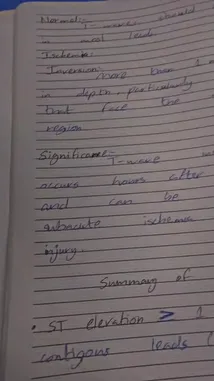 Normal:-
T-wave should
in most leads
Ischemia:
Inversion more than 1
in depth, particularly
that face the
region
Significance:- T-wave
occurs hours after
and can be
subacute ischemia
injury.
Summary of
• ST elevation > 1
contigous leads (